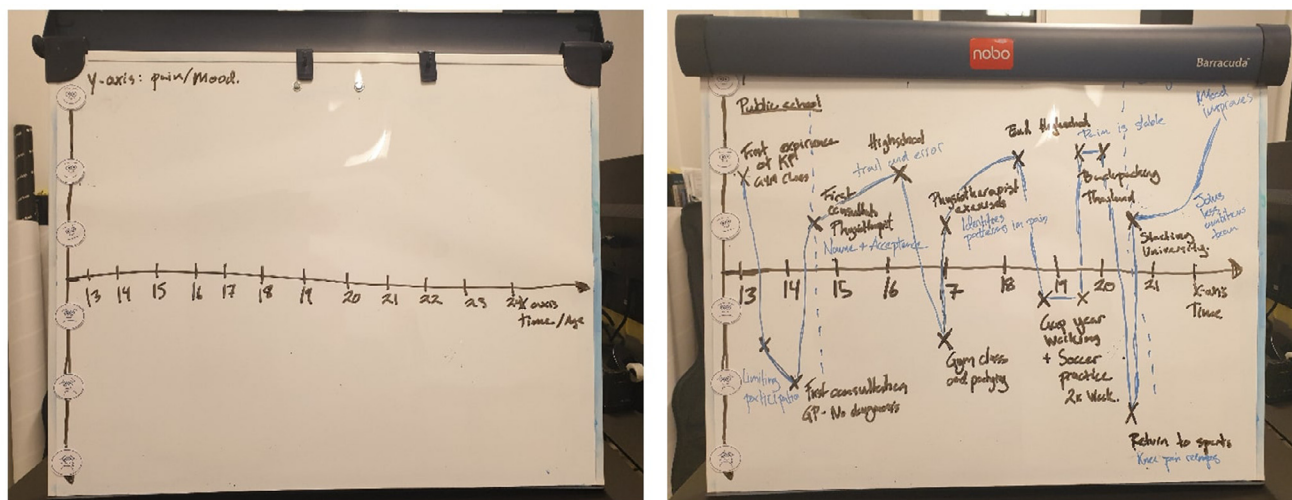 y-axis: pain/Mood.
13 14 15 16 17 18 19 20 21 22 23 24
X axis
Time/Age
nobo
Barracuda
Public school
First experience
of KP
GYM class
Highschool
trail and error
First
consultati
Physiotherapist
Name + Acceptance
End Highschool
Pain is stable
Physiotherapist
exercises
Identifies
patterns in pain
Backpacking
Thailand
Mood
improves
Joins
less
ambitious
team
Starting
University.
13 14 15 16 17 18 19 20 21
X-axis
Time
Limiting
participation
First consultation
GP - No diagnosis
Gym class
and partying
Gap year
Working
+ Soccer
practice
2x Week.
Return to sports
Knee pain